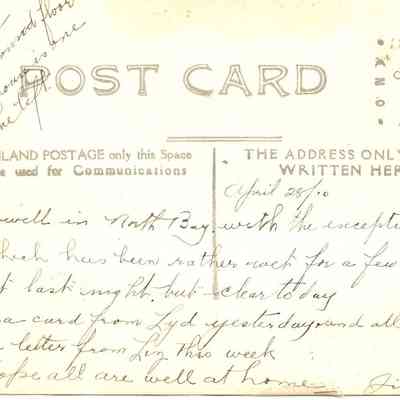 second floor
room is one
the left
POST CARD
NLAND POSTAGE only this Space
e used for Communications
THE ADDRESS ONLY
WRITTEN HER
April 28/10
well in North Bay, with the excepti
which has been rather wet for a few
t last night, but clear today
a card from Lyd yesterday and all
letter from Liz this week
ope all are well at home